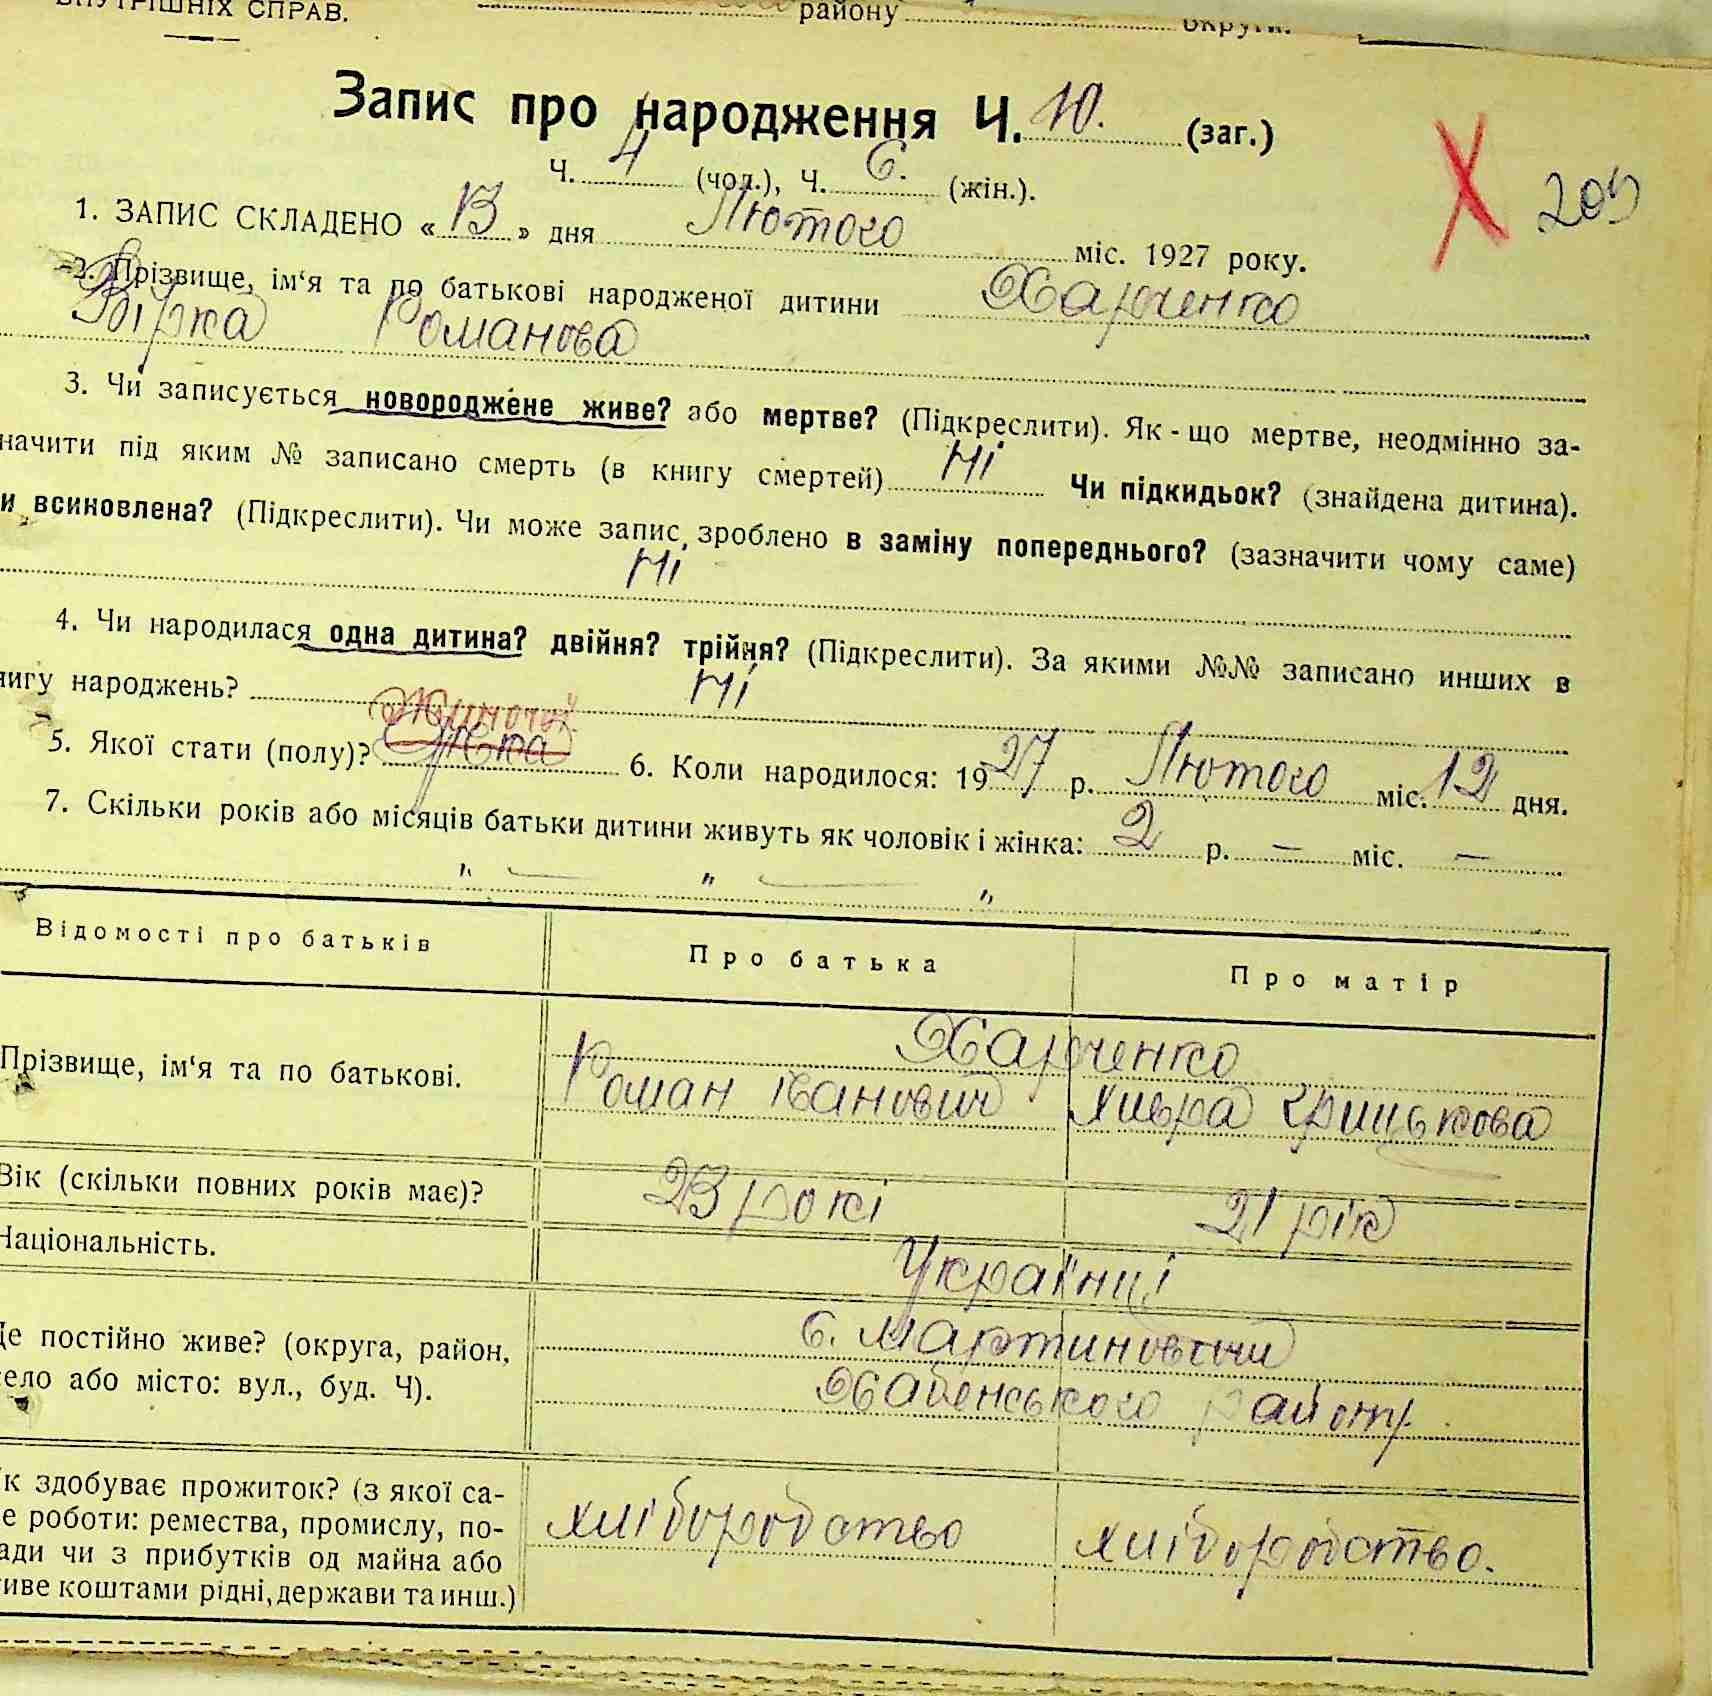 ВНУТРІШНІХ СПРАВ.
району округи.
Запис про народження Ч. 10. (заг.)
Ч. 4 (чол.), Ч. 6. (жін.).
209
1. ЗАПИС СКЛАДЕНО « 13 » дня Лютого міс. 1927 року.
2. Прізвище, ім‘я та по батькові народженої дитини Харченко
Вірка Романова
3. Чи записується новороджене живе? або мертве? (Підкреслити). Як-що мертве, неодмінно за-
начити під яким № записано смерть (в книгу смертей) Ні Чи підкидьок? (знайдена дитина).
и всиновлена? (Підкреслити). Чи може запис зроблено в заміну попереднього? (зазначити чому саме)
Ні
4. Чи народилася одна дитина? двійня? трійня? (Підкреслити). За якими №№ записано инших в
нигу народжень? Ні
Жіночої
5. Якої стати (полу)? 6. Коли народилося: 1927 р. Лютого міс. 12 дня.
7. Скільки років або місяців батьки дитини живуть як чоловік і жінка: 2 р. — міс. —
" — " — "
Відомості про батьків Про батька Про матір
Харченко
Прізвище, ім‘я та по батькові. Роман Іванович Хивра Грицькова
Вік (скільки повних років має)? 23 рокі 21 рік
Національність. Українці
Де постійно живе? (округа, район, с. Мартиновичи
село або місто: вул., буд. Ч). Хабенського району.
к здобуває прожиток? (з якої са-
е роботи: ремества, промислу, по- хліборобство хліборобство.
ади чи з прибутків од майна або
иве коштами рідні, держави та инш.)